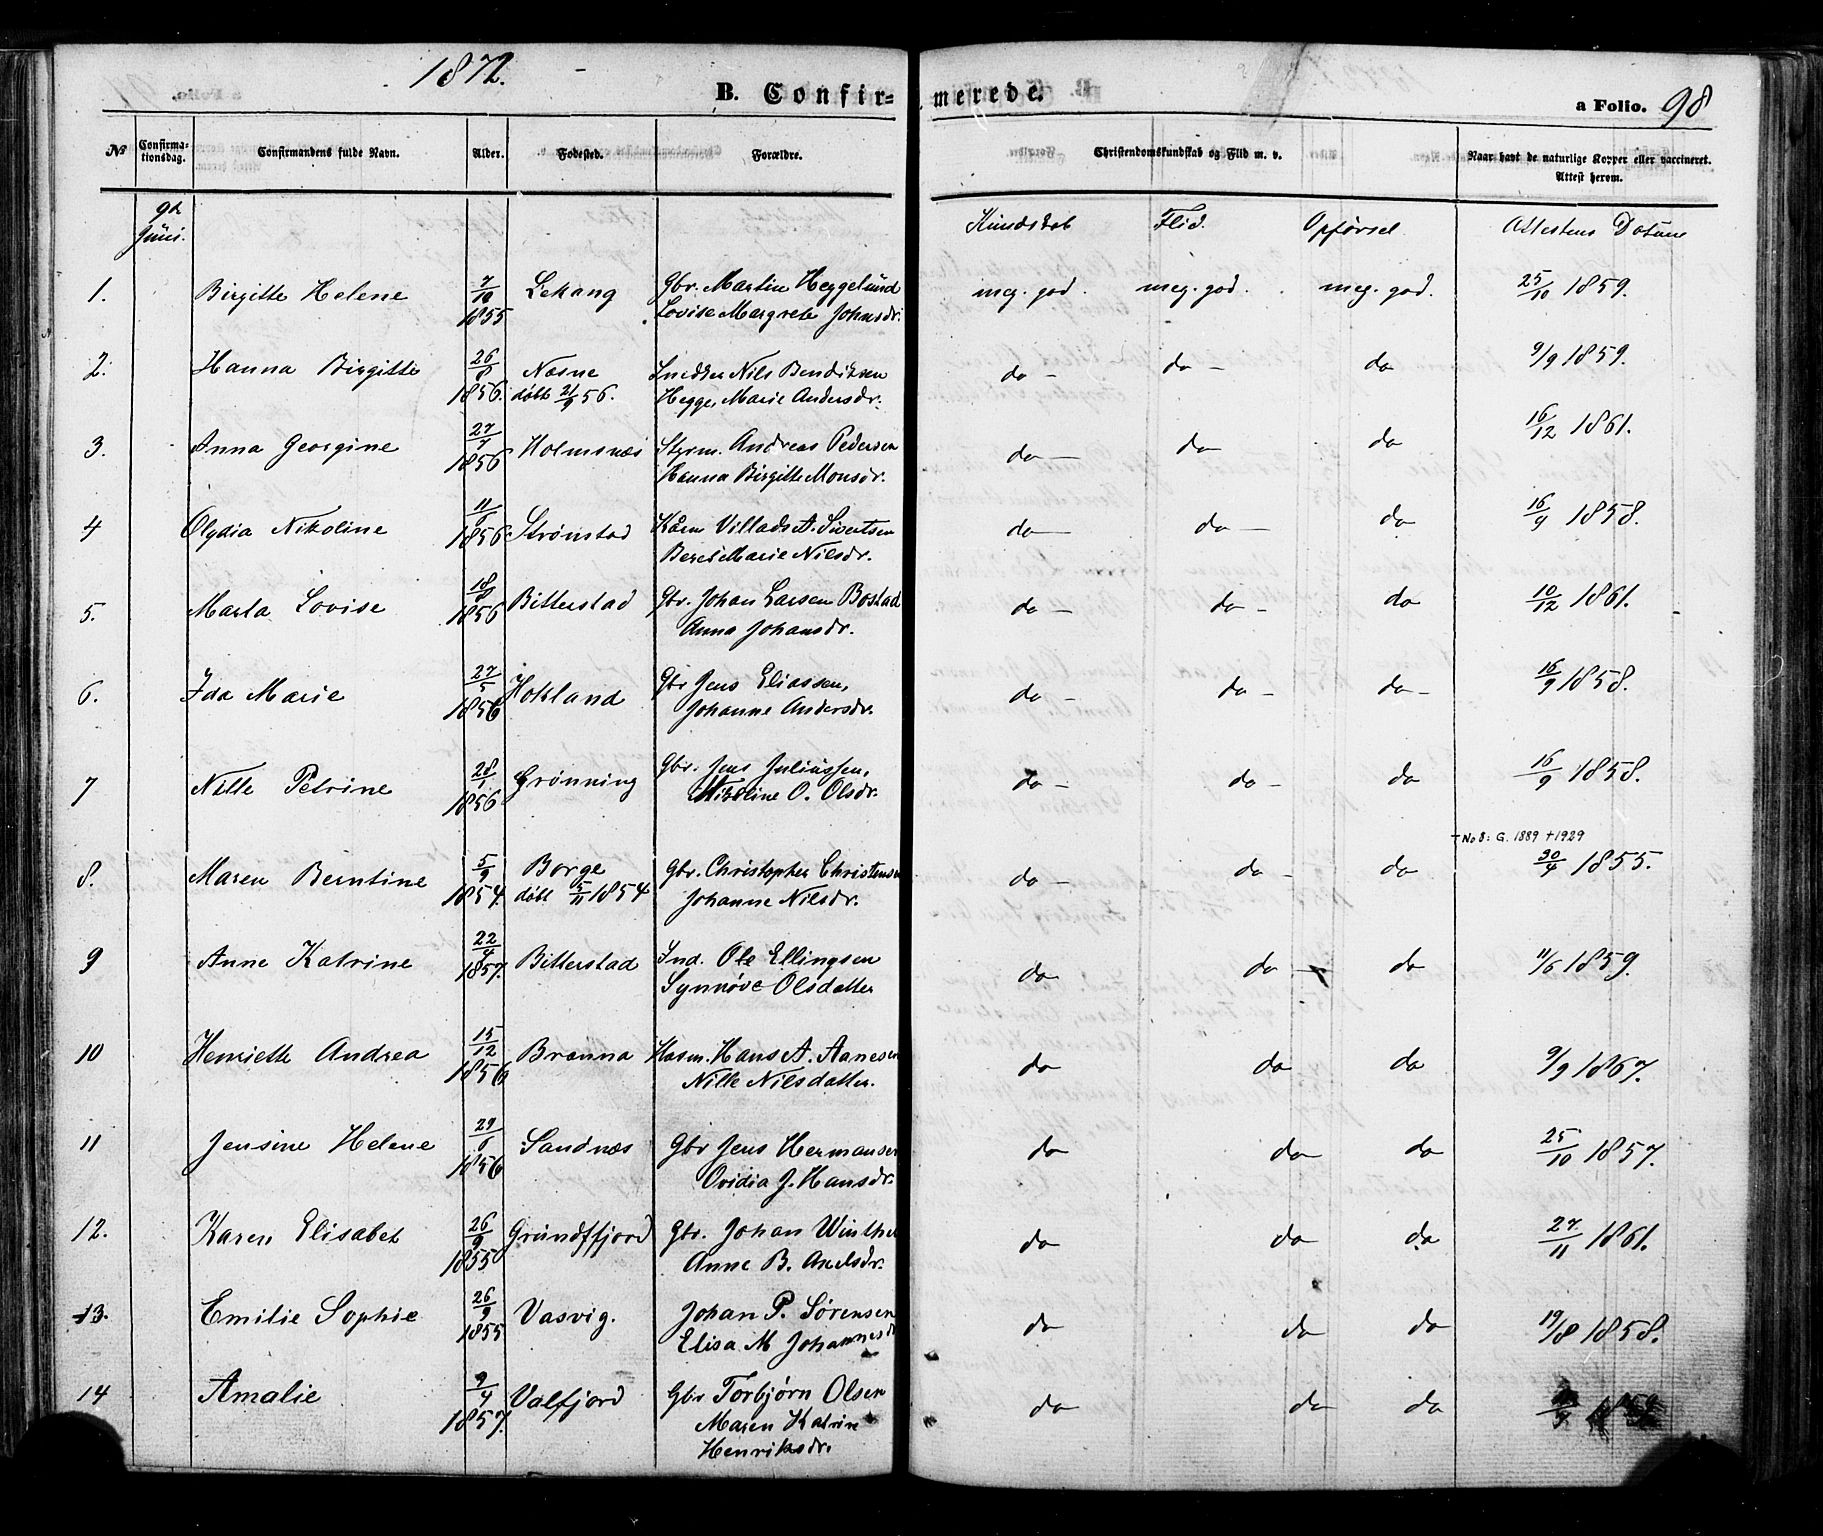 1872.
B. Confirmerede.
a Folio. 98
No Confirmationsdag. Confirmandens fulde Navn. Alder. Fødested. Forældre. Christendomskundskab og Flid m. v. Naar havt de naturlige Kopper eller vaccineret. Attest herom.
9de Juni. Kundskab Flid. Opførsel Attestens Datum
1. Birgitte Helene 7/10 1855 Lekang Gbr. Martin Heggelund meg. god. meg. god. meg. god. 25/10 1859.
Lovise Margrete Johnsdr.
2. Hanna Birgitte 26/8 1856. Næsne Snedker Nils Bendiksen do - do - do 9/9 1859.
døbt 21/9 56. Hegge, Marie Andersdr.
3. Anna Georgine 27/7 1856 Holmsnæs Styrm. Andreas Pedersen do - do do 16/12 1861.
Hanna Birgitte Monsdr.
4 Olydia Nikoline 1856 Strønstad Villads A. Sivertsen do - do - do 16/9 1858.
Beret Marie Nilsdr.
5. Marta Lovise 1856 Bitterstad Gbr. Johan Larsen Bostad do - do - do 10/12 1861.
Anna Johansdr.
6. Ida Marie 27/5 1856 Hokland Gbr Jens Eliassen, do - do - do - 16/9 1858.
Johanne Andersdr.
7 Nille Petrine 28/1 1856 Grønning Gbr. Jens Juliussen, do - do - do 16/9 1858.
Nikoline O. Olsdr.
+No 8: G. 1889 +1929
8. Maren Berntine 5/9 1854. Borge Gbr. Christopher Christensen do - do - do 30/4 1855.
døbt 5/11 1854 Johanne Nilsdr.
9 Anne Katrine 22/4 1857. Bitterstad Ind. Ole Ellingsen do do - do 11/6 1859.
Synnøve Olsdatter
10 Henriette Andrea 15/12 1856 Brænna Husm. Hans A. Aanesen do do do 9/9 1867.
Nille Nilsdatter.
11 Jensine Helene 29/6 1856 Sandnæs Gbr Jens Hermansen do do do 25/10 1857.
Ovidia J. Hansdr.
12. Karen Elisabet 26/9 1855 Grundfjord Gbr. Johan Winther do do do 27/11 1861.
Anne B. Axelsdr.
13. Emilie Sophie 26/9 1855 Vasvig. Johan P. Sørensen do do do 19/8 1858.
Elisa M Johannesdr
14 Amalie 9/4 1857. Valfjord Gbr Torbjørn Olsen do do do
Maren Katrine
Henriksdr.